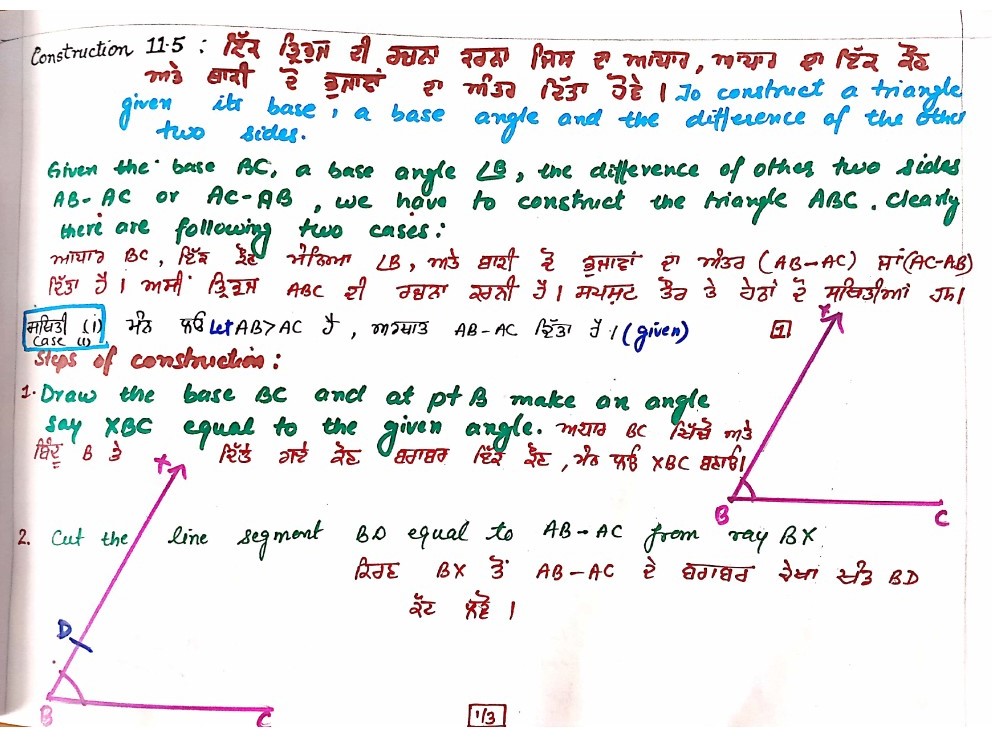 Construction 11.5 : ਇੱਕ ਤ੍ਰਿਭੁਜ ਦੀ ਰਚਨਾ ਕਰਨਾ ਜਿਸ ਦਾ ਆਧਾਰ, ਆਧਾਰ ਦਾ ਇੱਕ ਕੋਣ
ਅਤੇ ਬਾਕੀ ਦੋ ਭੁਜਾਵਾਂ ਦਾ ਅੰਤਰ ਦਿੱਤਾ ਹੋਵੇ । To construct a triangle
given its base, a base angle and the difference of the other
two sides.
Given the base BC, a base angle ∠B, the difference of other two sides
AB-AC or AC-AB, we have to construct the triangle ABC. Clearly
there are following two cases:
ਆਧਾਰ BC, ਇੱਕ ਕੋਣ ਮੰਨਿਆ ∠B, ਅਤੇ ਬਾਕੀ ਦੋ ਭੁਜਾਵਾਂ ਦਾ ਅੰਤਰ (AB-AC) ਜਾਂ (AC-AB)
ਦਿੱਤਾ ਹੈ। ਅਸੀਂ ਤ੍ਰਿਭੁਜ ABC ਦੀ ਰਚਨਾ ਕਰਨੀ ਹੈ। ਸਪਸ਼ਟ ਤੌਰ ਤੇ ਹੇਠਾਂ ਦੋ ਸਥਿਤੀਆਂ ਹਨ।
ਸਥਿਤੀ (i) ਮੰਨ ਲਓ Let AB>AC ਹੈ, ਅਰਥਾਤ AB-AC ਦਿੱਤਾ ਹੈ। (given)
Case (i)
1
Steps of construction:
1. Draw the base BC and at pt B make an angle
say XBC equal to the given angle. ਅਧਾਰ BC ਖਿੱਚੋ ਅਤੇ
ਬਿੰਦੂ B ਤੇ ਦਿੱਤੇ ਗਏ ਕੋਣ ਬਰਾਬਰ ਇੱਕ ਕੋਣ, ਮੰਨ ਲਓ XBC ਬਣਾਓ।
X
B C
X
2. Cut the line segment BD equal to AB-AC from ray BX
ਕਿਰਣ BX ਤੋਂ AB-AC ਦੇ ਬਰਾਬਰ ਰੇਖਾ ਖੰਡ BD
ਕੱਟ ਲਵੋ ।
D
B C
1/3